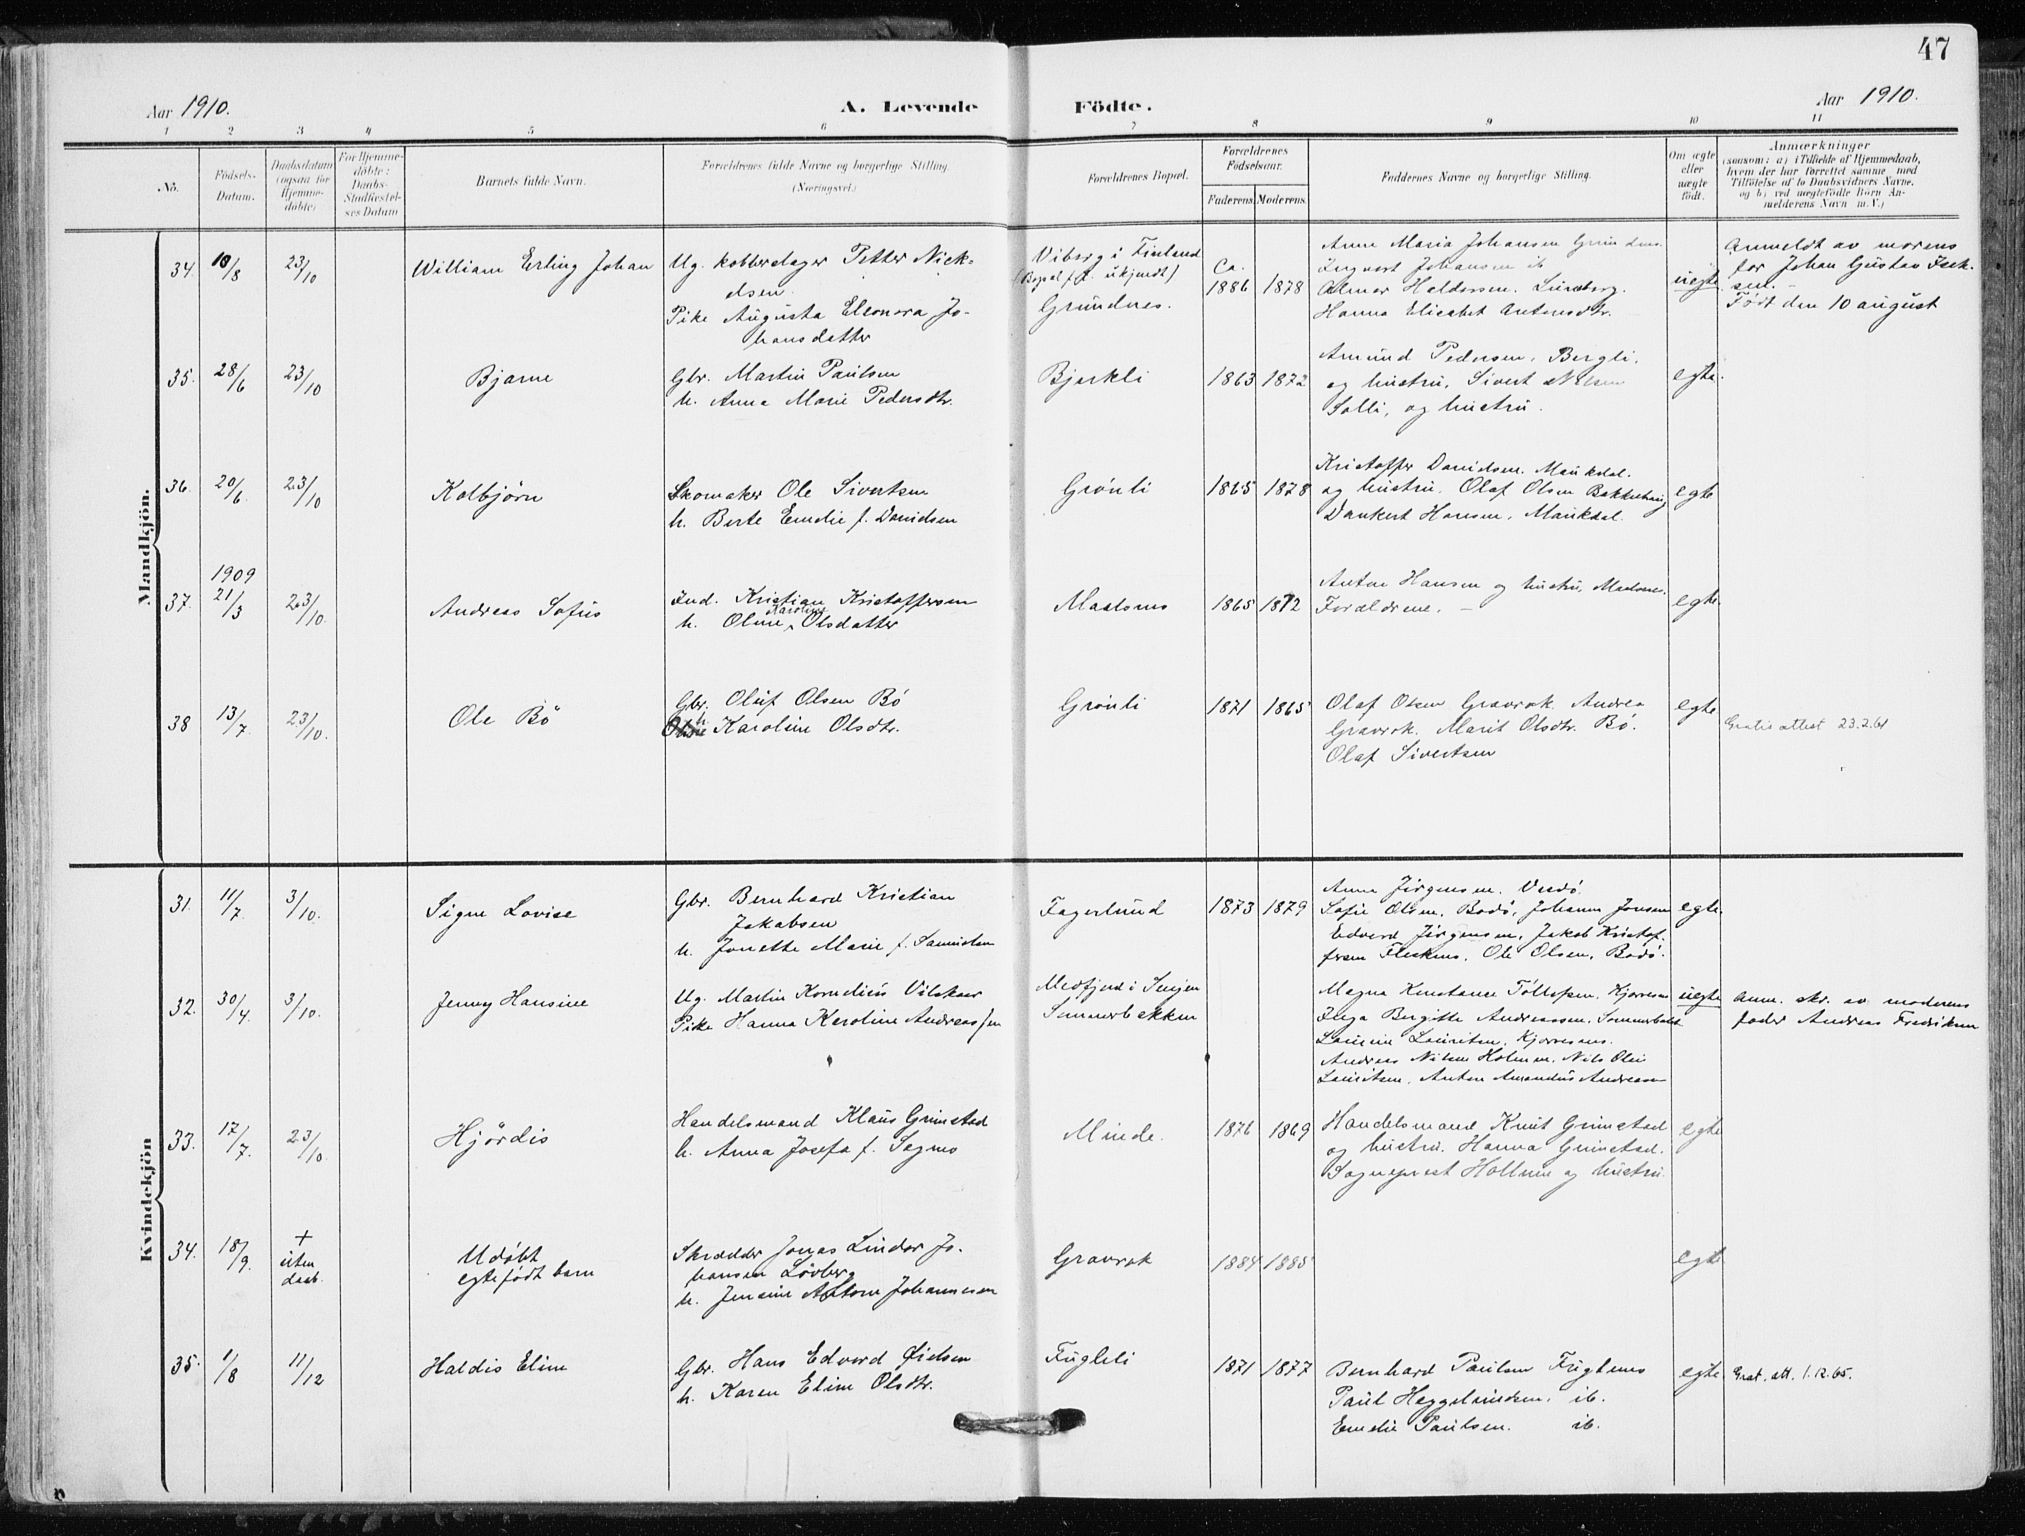 47
Aar 1910.
A. Levende Födte.
Aar 1910.
1 2 3 4 5 6 7 8 9 10 11
No.
Födsels-
Datum.
Daabsdatum
(ogsaa for
Hjemme-
döbte)
For Hjemme-
döbte:
Daabs-
Stadfæstel-
ses Datum
Barnets fulde Navn.
Forældrenes fulde Navne og borgerlige Stilling.
(Næringsvei.)
Forældrenes Bopæl.
Forældrenes
Födselsaar.
Faderens. Moderens.
Faddernes Navne og borgerlige Stilling.
Om ægte
eller
uægte
född.
Anmærkninger
(saasom: a) i Tilfælde af Hjemmedaab,
hvem der har forrettet samme, med
Tilföielse af to Daabsvidners Navne,
og b) ved uægtefödte Börn An-
melderens Navn m. V.)
Mandkjön.
34. 10/8 23/10 William Erling Johan
Ug. kobberslager Petter Nick-
elsen
Pike Augusta Eleonora Jo-
hansdatter
Viborg i Finland
(Bopæl f. t. ukjendt)
Grundnes.
Ca.
1886 1878
Anne Maria Johansen Grundnes.
Ingvart Johansen ib
Halvorsen. Lundberg.
Hanna Elisabet Antonsdtr.
uegte
Anmeldt av morens
far Johan Gustav Isak-
sen.
Født den 10 august
35. 28/6 23/10 Bjarne
Gbr. Martin Paulsen
h. Anna Marie Pedersdtr.
Bjerkli
1863 1872
Amund Pedersen, Bergli,
og hustru, Sivert Nilsen
Solli, og hustru.
egte.
36. 20/6 23/10 Kolbjørn
Skomaker Ole Sivertsen
h. Berte Emelie f. Danidsen
Grønli
1865 1878
Kristoffer Danidsen. Maukdal.
og hustru. Olaf Olsen Bakkehaug
Dankert Hansen, Maukdal.
egte
37. 1909
21/3 23/10 Andreas Sofus
Ind. Kristian Kristoffersen
h. Oline Karoline Olsdatter
Maalsnes
1865 1872
Anton Hansen og hustru, Maalsnes.
Forældrene. —
egte
38 13/7 23/10. Ole Bö
Gbr. Oluf Olsen Bö
h. Karoline Olsdtr.
Grønli
1871 1865
Olaf Olsen Gravrok. Andrea
Gravrok. Marit Olsdtr. Bö.
Olaf Sivertsen
egte
Gratis attest 23.2.61
Kvindekjön
31. 11/7. 3/10. Signe Lovise
Gbr. Bernhard Kristian
Jakobsen
h. Jonette Marie f. Samuelsen
Fagerlund
1873 1879
Anna Jørgensen.
Sofie Olsen, Bodö, Johanna Jonsen
Edvard Jørgensen, Jakob Kristof-
fersen Fleskmo, Ole Olsen, Bodö.
egte.
32. 30/4. 3/10. Jenny Hansine
Ug. Martin Kornelius Vilskær
Pike Hanna Karoline Andreassen
Medfjord i Senjen
Sommerbakken
Magna Konstance Tollefsen, Kjærresnes
Inga Bergitte Andreassen. Sommerbakk
Lauritsen, Kjærresnes.
Andreas Nilsen Holmen. Nils Olai
Lauritsen. Anton Amandus Andreasen
uegte
Anm. skr. av moderens
fader Andreas Fredriksen
33. 17/7. 23/10 Hjørdis
Handelsmand Klaus Grimstad
h. Anna Josefa f. Sagmo
Minde.
1876 1869
Handelsmand Knut Grimstad
og hustru. Hanna Grimstad.
Sogneprest Hollum og hustru.
egte
34. 18/9. +
uten
daab.
Udøbt
egtefødt barn
Skrædder Jonas Lindor Jo-
hansen Lövberg
h. Jensine Antone Johannesen
Gravrok
1884 1885
egte
35. 1/8 11/12 Haldis Eline
Gbr. Hans Edvard Öielsen
h. Karen Eline Olsdtr.
Fugleli
1871 1877
Bernhard Paulsen Fuglemo
Paul Heggelundsen. ib.
Emelie Paulsen. ib.
egte
Grat. att. 1.12.65.